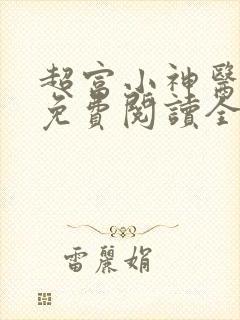 超富小神醫
免費閱讀全
雷麗娟